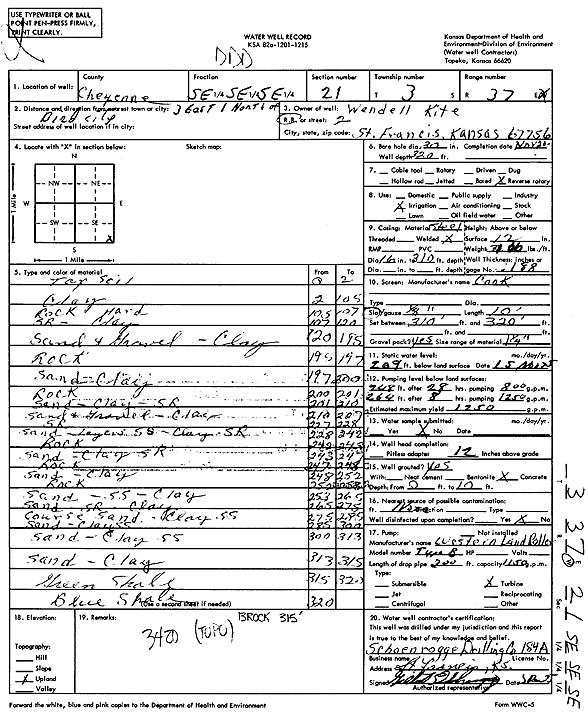 USE TYPEWRITER OR BALL
POINT PEN-PRESS FIRMLY,
PRINT CLEARLY.
WATER WELL RECORD
KSA 82a-1201-1215
Kansas Department of Health and
Environment-Division of Environment
(Water well Contractors)
Topeka, Kansas 66620
1. Location of well:
County
Cheyenne
Fraction
SE 1/4 SE 1/4 SE 1/4
Section number
21
Township number
T 3 S
Range number
R 37
2. Distance and direction from nearest town or city: 3 East 1 North of
Bird City
Street address of well location if in city:
3. Owner of well: Wendell Kite
R.R. or street: 2
City, state, zip code: St. Francis, Kansas 67756
4. Locate with "X" in section below:
Sketch map:
N
NW NE
W E
SW SE
X
S
1 Mile
1 Mile
6. Bore hole dia. 30 in. Completion date
Well depth 320 ft.
7. Cable tool Rotary Driven Dug
Hollow rod Jetted Bored X Reverse rotary
8. Use: Domestic Public supply Industry
X Irrigation Air conditioning Stock
Lawn Oil field water Other
9. Casing: Material Steel Height: Above or below
Threaded Welded X Surface 12 in.
RMP PVC Weight lbs./ft.
Dia. 16 in. to 310 ft. depth Wall Thickness: inches or
Dia. in. to ft. depth gage No. .188
10. Screen: Manufacturer's name Cook
Type Dia.
Slot/gauze 1/8" Length 10'
Set between 310' ft. and 320' ft.
ft. and ft.
Gravel pack? yes Size range of material 1/4"
11. Static water level: mo./day/yr.
209 ft. below land surface Date
12. Pumping level below land surfaces:
268 ft. after 28 hrs. pumping 800 g.p.m.
264 ft. after 8 hrs. pumping 1250 g.p.m.
Estimated maximum yield 1250 g.p.m.
13. Water sample submitted: mo./day/yr.
Yes X No Date
14. Well head completion:
Pitless adapter 12 Inches above grade
15. Well grouted? yes
With: Neat cement Bentonite X Concrete
Depth: From 0 ft. to 10 ft.
16. Nearest source of possible contamination:
ft. Direction Type
Well disinfected upon completion? Yes X No
17. Pump: Not installed
Manufacturer's name Western Land Roller
Model number Type B HP Volts
Length of drop pipe 300 ft. capacity 1150 g.p.m.
Type:
Submersible X Turbine
Jet Reciprocating
Centrifugal Other
5. Type and color of material From To
Top Soil 0 2
Clay 2 105
Rock Hard 105 107
SR - Clay 107 120
Sand & Gravel - Clay 120 195
Rock 195 197
Sand - Clay 197 200
Rock 200 201
Sand - Clay - SR 201 210
Sand & Gravel - Clay 210 227
SR 227 228
Sand - Layers SS - Clay - SR 228 242
Rock 242 243
Sand - Clay SR 243 247
Rock 247 248
Sand - Clay 248 252
Rock 252 253
Sand - SS - Clay 253 265
Sand - SR - Clay 265 275
Course Sand - Clay SS 275 285
Sand - Clay SS 285 300
Sand - Clay 300 313
Sand - Clay 313 315
Green Shale 315 320
Blue Shale 320
(Use a second sheet if needed)
18. Elevation:
Topography:
Hill
Slope
X Upland
Valley
19. Remarks:
BROCK 315'
3420 (TOPO)
20. Water well contractor's certification:
This well was drilled under my jurisdiction and this report
is true to the best of my knowledge and belief.
Schoenrogge Drilling Co 184A
Business name License No.
Address St Francis, KS.
Signed Date
Authorized representative
Forward the white, blue and pink copies to the Department of Health and Environment
Form WWC-5
3 37 W 21 SE SE SE
Sec. 1/4 1/4 1/4